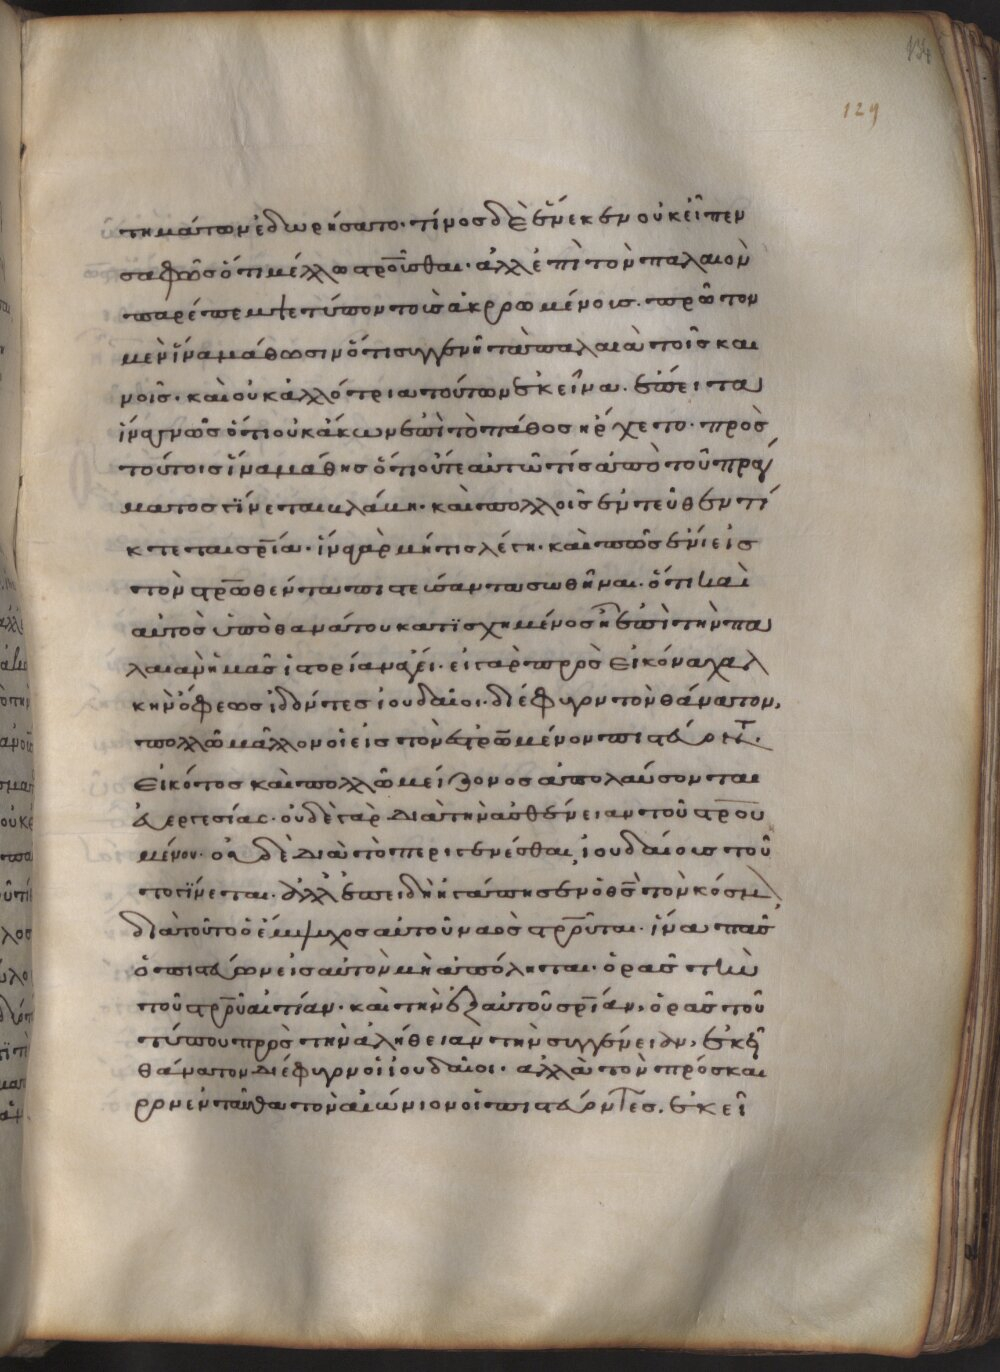 129
τημάτων ἐδωρήσατο· τίνος δὲ ἕνεκεν οὐκ εἶπεν
σαφῶς ὅτι μέλλω σ̅ρ̅οῦσθαι· ἀλλ ἐπὶ τὸν παλαιὸν
παρέπεμψε τύπον τοὺς ἀκροωμένους· πρῶτον
μὲν ἵνα μάθωσιν ὅτι συγγενῆ τὰ παλαιὰ τοῖς και
νοῖς· καὶ οὐκ ἀλλότρια τούτων ἐκεῖνα· ἔπειτα
ἵνα γνῶς ὅτι οὐκ ἄκων ἐπὶ τὸ πάθος ἤρχετο· πρὸς
τούτοις ἵνα μάθης ὅτι οὔτε αὐτῶ τίς ἀπὸ τοῦ πράγ
ματος γίνεται βλάβη· καὶ πολλοῖς ἐντεῦθεν τί
κτεται σ̅ρ̅ία· ἵνα γὰρ μή τις λέγη· καὶ πῶς ἔνι εἰς
τὸν σ̅ρ̅ωθέντα πιστεύσαντα σωθῆναι· ὅτι καὶ
αὐτὸς ὑπὸ θανάτου κατισχημένος ἦν ἐπὶ τὴν πα
λαιὰν ἡμᾶς ἱστορίαν ἄγει· εἰ γὰρ πρὸς εἰκόνα χαλ
κῆν ὄφεως ἰδόντες ἰουδαῖοι· διέφυγον τὸν θάνατον,
πολλῶ μᾶλλον οἱ εἰς τὸν ἐσ̅ρ̅ωμένον πιστεύοντ
εἰκότως καὶ πολλῶ μείζονος ἀπολαύσονται
εὐεργεσίας· οὐδὲ γὰρ διὰ τὴν ἀσθένειαν τοῦ σ̅ρ̅ου
μένου· οὐδὲ διὰ τὸ περιγενέσθαι ἰουδαίους τοῦ
το γίνεται· ἀλλ ἐπειδὴ ἠγάπησεν ὁ θ̅ς̅ τὸν κόσμ
διὰ τοῦτο ὁ ἔμψυχος αὐτοῦ ναὸς σ̅ρ̅οῦται· ἵνα πᾶς
ὁ πιστεύων εἰς αὐτὸν μὴ ἀπόληται· ὁρᾶς τὴν
τοῦ σ̅ρ̅οῦ αἰτίαν· καὶ τὴν ἐξ αὐτοῦ σ̅ρ̅ίαν, ὁρᾶς τοῦ
τύπου πρὸς τὴν ἀλήθειαν τὴν συγγένειαν, ἐκεῖ
θάνατον διέφυγον οἱ ἰουδαῖοι· ἀλλὰ τὸν πρόσκαι
ρον ἐνταῦθα τὸν αἰώνιον οἱ πιστεύοντες. ἐκεῖ